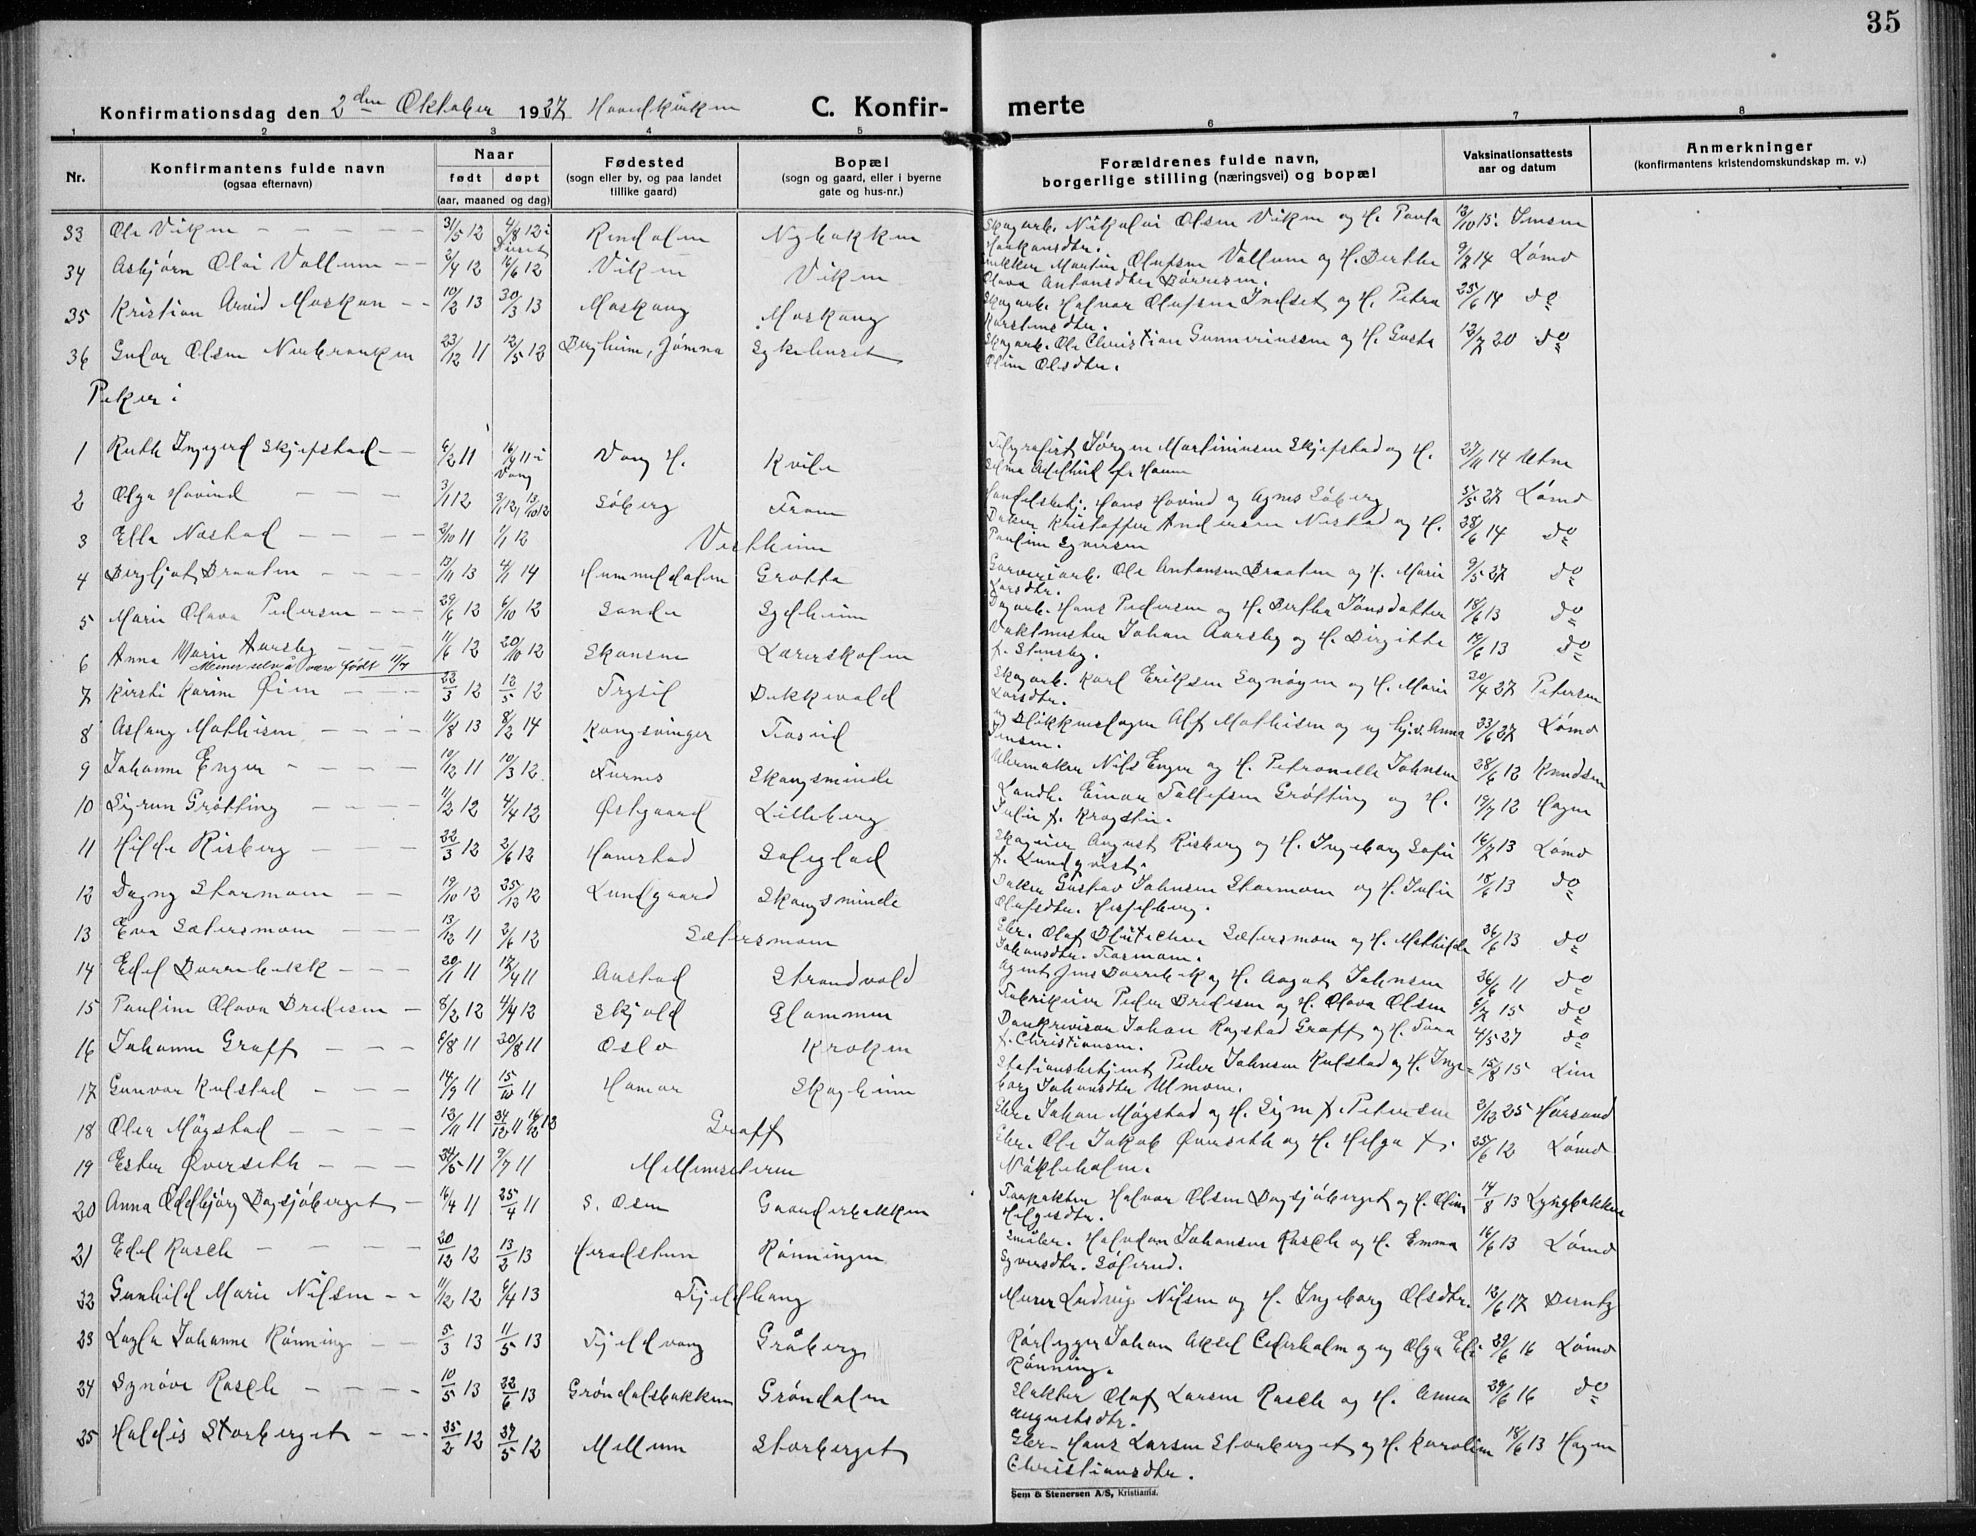 35
Konfirmationsdag den 2den Oktober 1927 Hovedkirken C. Konfir- merte
1 2 3 4 5 6 7 8
Nr. Konfirmantens fulde navn (ogsaa efternavn) Naar født døpt (aar, maaned og dag) Fødested (sogn eller by, og paa landet tillike gaard) Bopæl (sogn og gaard, eller i byerne gate og hus-nr.) Forældrenes fulde navn, borgerlige stilling (næringsvei) og bopæl Vaksinationsattests aar og datum Anmerkninger (konfirmantens kristendomskundskap m. v.)
33 Ole Viken 31/5 12 4/8 12 i Rendalen Nybakken Skogarb. Nikolai Olsen Viken og H. Paula Haakonsdtr. 13/10 15. Imsen
34 Asbjørn Olai Vollum 2/4 12 16/6 12 Viken Viken Martin Olufsen Vollum og H. Berthe Olava Antonsdtr 9/7 14 Lømo
35 Kristian Arvid Moskan 10/2 13 30/3 13 Moskaug Moskaug Skogarb. Halvor Olufsen Indset og H. Petra Karstensdtr. 25/6 14 do
36 Olsen 23/12 11 12/5 12 Bergheim, Jømna Sykehuset Skogarb. Ole Christian Gunneriussen og H. Gusta Oline Olsdtr. 12/7 20 do
Piker:
1 Ruth Ingegerd Skjefstad 6/2 11 16/4 11 i Vang Vang H. Kvile Telegrafist Jørgen Martiniusen Skjefstad og H. 27/11 14 Utne
2 Olga Hovind 3/1 12 Søberg Fram Handelsbetj. Hans Hovind og Agnes Søberg 5/5 27 Lømo
3 Ella Næstad 2/10 11 1/1 12 Vestheim Baker Kristoffer Andersen Næstad og H. Pauline Syversen 28/6 14 do
4 Bergljot Braaten 13/11 13 4/1 14 Hummeldalen Grotta Garveriarb. Ole Antonsen Braaten og H. Marie Larsdtr. 9/5 27 do
5 Marie Olava Pedersen 29/6 12 6/10 12 Sande Sydheim Dagarb. Hans Pedersen og H. Berthe Jonsdatter 18/6 13 do
6 Anna Marie Aarsby 11/6 12 20/10 12 Skansen Lærerskolen Vaktmester Johan Aarsby og H. Birgitte f. Stensby. 19/6 13 do
Mener selv å være født 11/7
7 Kirsti Karine Øien 22/3 12 12/5 12 Trysil Bekkevold Skogarb. Karl Eriksen og H. Marie Larsdtr. 20/4 27 Petersen
8 Aslaug Mathisen 11/8 13 8/2 14 Kongsvinger Blikkenslager Alf Mathisen og ug. Anna Jensen. 23/6 27 Lømo
9 Johanne Enger 10/12 11 10/3 12. Furnes Skougsminde Uhrmaker Nils Enger og H. Petronelle Johnsen 28/6 12 Knudsen
10 Sigrun Grøtting 11/2 12 4/4 12 Østgaard Lilleberg Landh. Einar Tollefsen Grøtting og H. Julie f. Krogstie. 19/7 12 Hagen
11 Hilde Risberg 22/3 12 2/6 12 Hanestad Soleglad August Risberg og H. Ingeborg Sofie f. Lundqvist 16/7 13 Lømo
12 Dagny Stormoen 19/10 12 25/12 12 Lundgaard Skougsminde Baker Gustav Johnsen Stormoen og H. Julie Olufsdtr. Hesselberg. 18/6 13 do
13 Eva Sætersmoen 13/12 11 2/6 12 Sætersmoen Gbr. Olaf Sætersmoen og H. Mathilde Johansdtr. 26/6 13 do
14 Edel Borrebekk 20/1 11 17/4 11 Aastad Strandvold Agent Jens Borrebek og H. Aagot Johnsen 26/6 11 do
15 Pauline Olava Bredesen 8/2 12 4/4 12 Skjold Glommen Fabrikeier Peder Bredesen og H. Olava Olsen 6/7 15 do
16 Johanne Graff 6/8 11 20/8 11 Oslo Kroken Bankrevisor Johan Rogstad Graff og H. f. Christiansen. 4/5 27 do
17 Gunvor Kulstad 14/9 11 15/10 11 Hamar Skogheim Stationsbetjent Peder Johnsen Kulstad og H. Ingeborg Johansdtr Ulmoen. 15/8 15 Lien
18 Olea Møystad 13/11 11 24/12 11 Graff Gbr. Johan Møystad og H. Signe f. Petersen 2/12 25
19 Ester Øverseth 24/5 11 9/7 11 Mellemseteren Gbr. Ole Jakob Øverseth og H. Helga f. Nökleholm. 25/6 12 Lømo
20 Anna Oddbjørg Dagsjøberget 16/4 11 25/4 11 S. Osen Gaarderbakken Forpakter Halvor Olsen Dagsjøberget og H. Oline Helgesdtr. 14/8 13 Lyngbakken
21 Edel Rasch 20/12 12 13/2 13 Heradstun Rønningen Halvdan Johansen Rasch og H. Emma Syversdtr. 16/6 13 Lømo
22 Gunhild Marie Nilsen 11/12 12 6/4 13 Fjeldhaug Murer Ludvig Nilsen og H. Ingeborg Olsdtr. 12/6 17 Berntz
23 Layla Johanne Rønning 5/3 13 11/5 13 Fjeldvang Gråberg Rørlegger Johan Aksel Cederholm og ug Olga Eli Rønning. 29/6 16 Lømo
24 Synøve Rasch 10/5 13 22/6 13 Grøndalsbakken Grøndalen Slakter Olaf Larsen Rasch og H. Anna Augustsdtr. 29/6 16 do
25 Haldis Storberget 25/2 12 27/5 12 Mellem Storberget Gbr. Hans Larsen Storberget og H. Karoline Christiansdtr. 18/6 13 Hagen
Sem & Stenersen A/S, Kristiania.